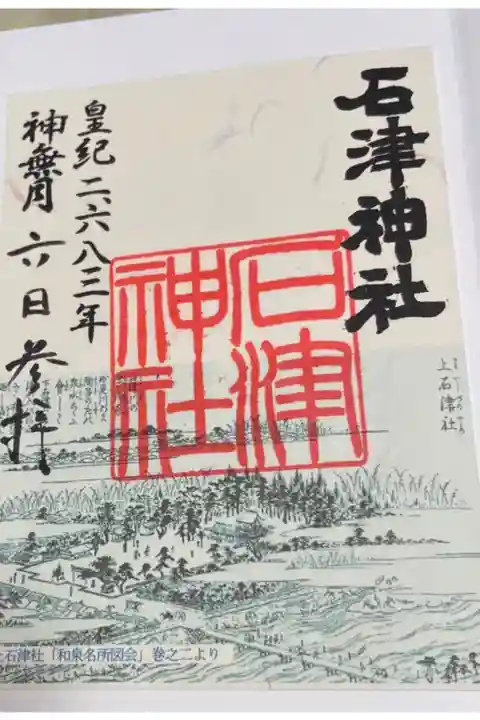 石津神社
皇紀二、六八三年
神無月六日参拝
石津
神社
上石津社
石津社「和泉名所図会」巻之二より